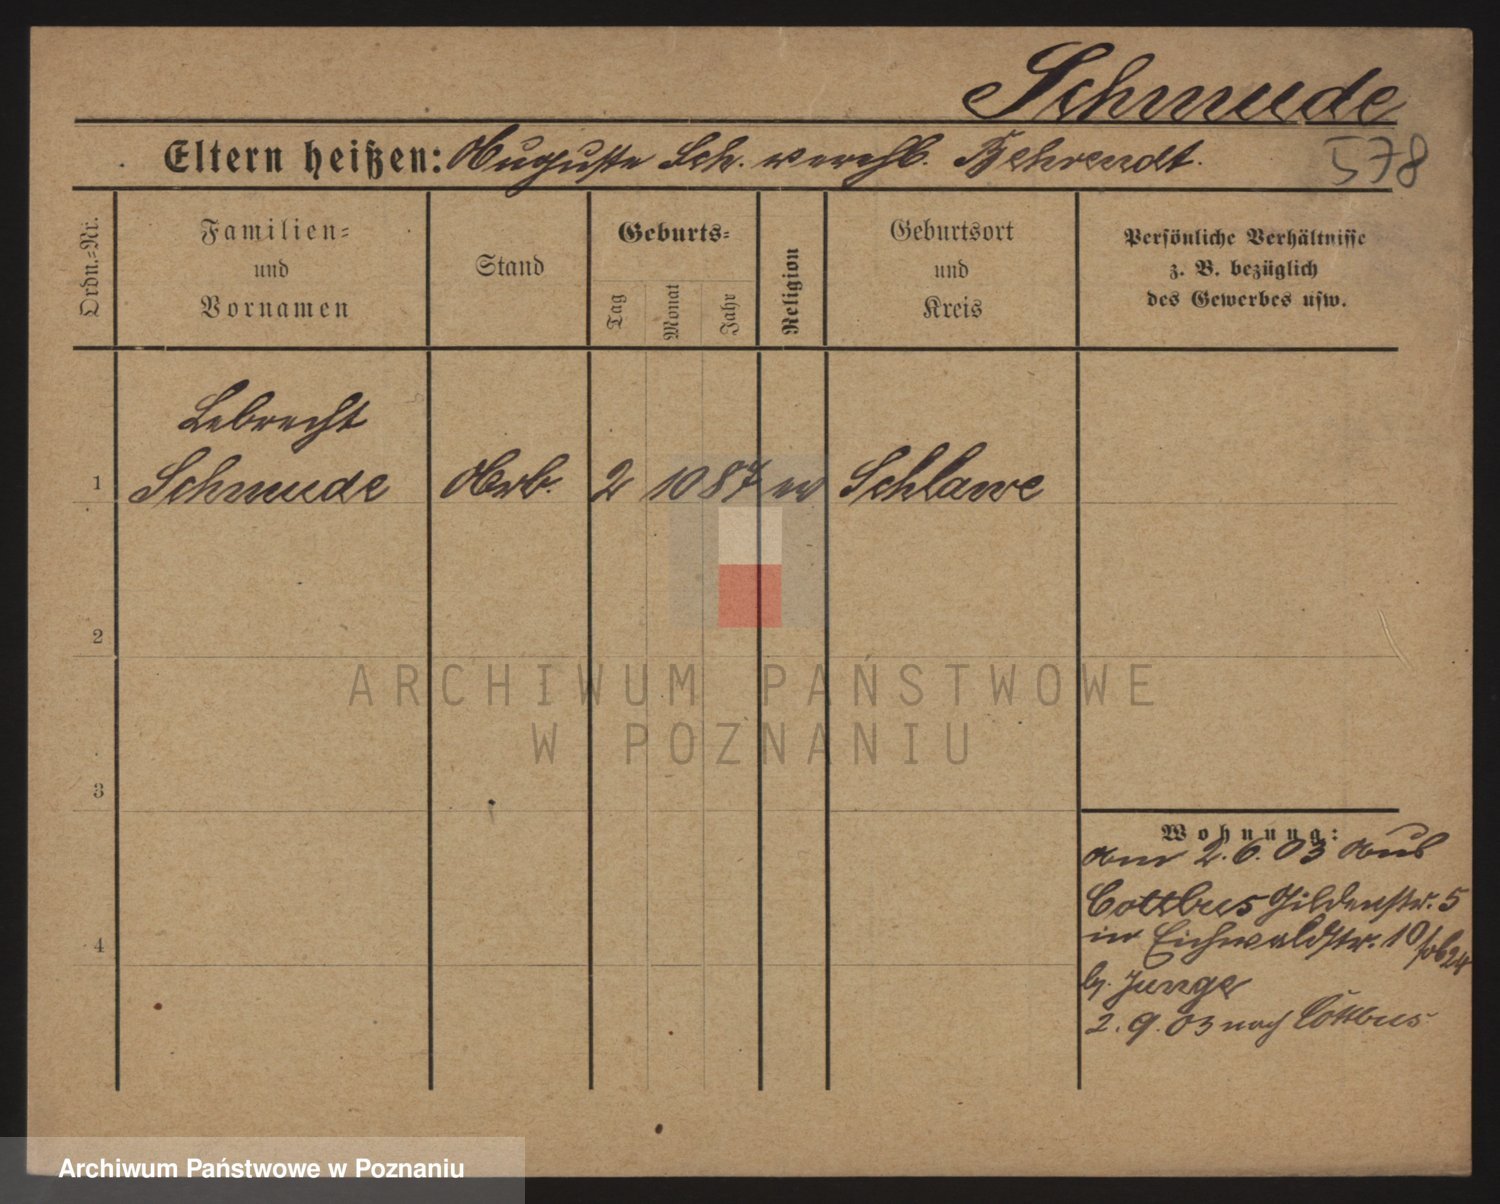 Schmude
Eltern heißen: Auguste Sch. verehl. Behrendt.
578
Ordn.-Nr.
Familien-
und
Vornamen
Stand
Geburts-
Tag
Monat
Jahr
Religion
Geburtsort
und
Kreis
Persönliche Verhältnisse
z. B. bezüglich
des Gewerbes usw.
Lebrecht
1 Schmude Arb. 2 10 87 ev Schlawe
2
3
4
ARCHIWUM PAŃSTWOWE
W POZNANIU
Wohnung:
am 2. 6. 03 aus
Cottbus Gildenstr. 5
in Eichwaldstr. 10
b. Junge
2. 9. 03 nach Cottbus
Archiwum Państwowe w Poznaniu